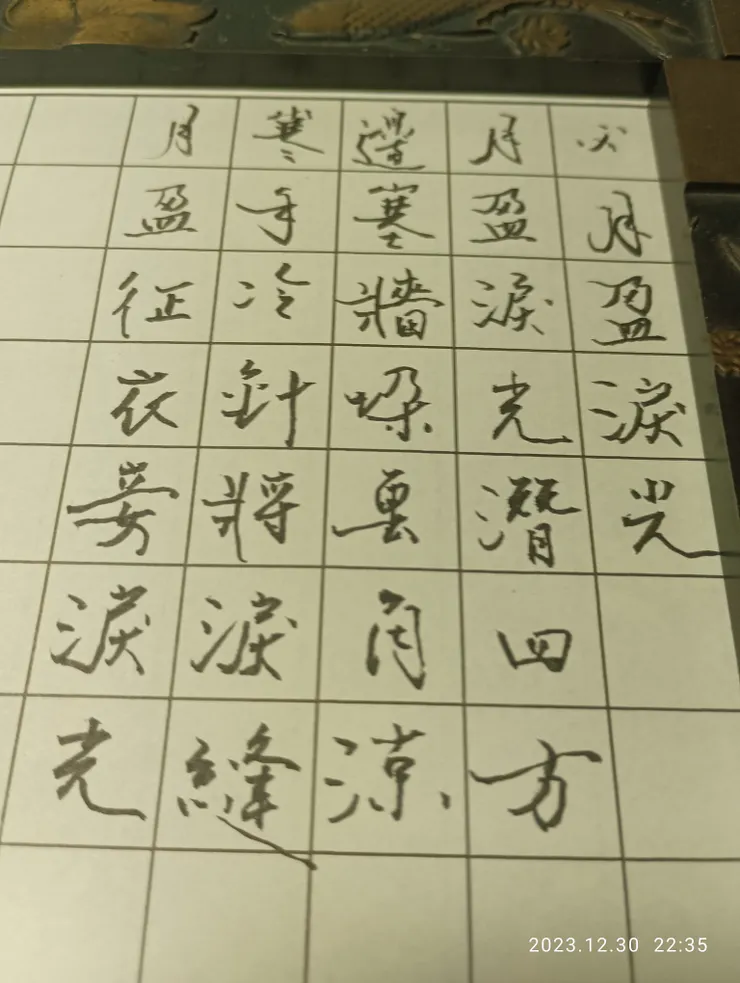 月盈淚光
月盈淚光潛四方
邊塞牆垛畫角涼、
寒手冷針將淚縫
月盈征衣妾淚光
2023.12.30 22:35